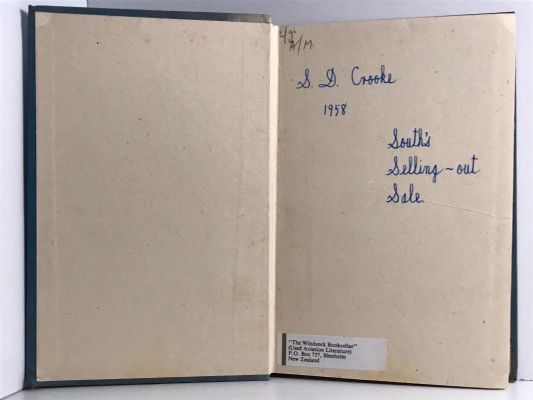 S. D. Crooke
1958
South's
Selling-out
Sale.
"The Windsock Bookcellar"
(Used Aviation Literature)
P.O. Box 757, Blenheim
New Zealand